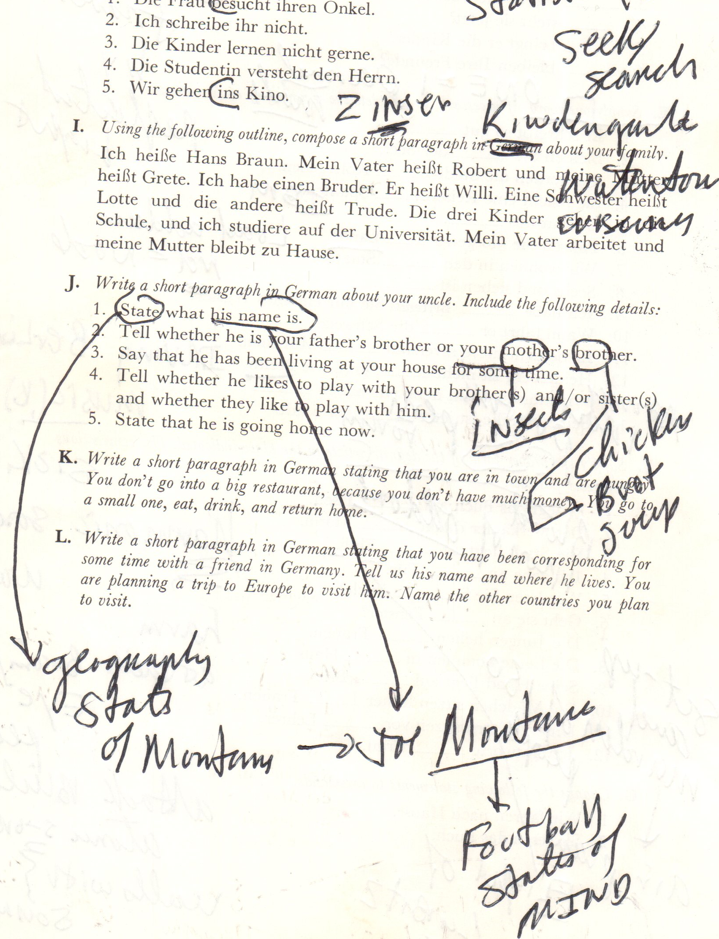 1. Die Frau besucht ihren Onkel.
2. Ich schreibe ihr nicht.
Seek/
search
3. Die Kinder lernen nicht gerne.
4. Die Studentin versteht den Herrn.
5. Wir gehen ins Kino.
Zinser
I. Using the following outline, compose a short paragraph in German about your family.
Ich heiße Hans Braun. Mein Vater heißt Robert und meine Mutter
heißt Grete. Ich habe einen Bruder. Er heißt Willi. Eine Schwester heißt
Lotte und die andere heißt Trude. Die drei Kinder gehen in die
Schule, und ich studiere auf der Universität. Mein Vater arbeitet und
meine Mutter bleibt zu Hause.
J. Write a short paragraph in German about your uncle. Include the following details:
1. State what his name is.
2. Tell whether he is your father's brother or your mother's brother.
3. Say that he has been living at your house for some time.
4. Tell whether he likes to play with your brother(s) and/or sister(s)
and whether they like to play with him.
5. State that he is going home now.
insects
Chicken
Brot
soup
K. Write a short paragraph in German stating that you are in town and are hungry.
You don't go into a big restaurant, because you don't have much money. You go to
a small one, eat, drink, and return home.
L. Write a short paragraph in German stating that you have been corresponding for
some time with a friend in Germany. Tell us his name and where he lives. You
are planning a trip to Europe to visit him. Name the other countries you plan
to visit.
geography
stats
of Montana → Joe Montana
Football
states of
MIND